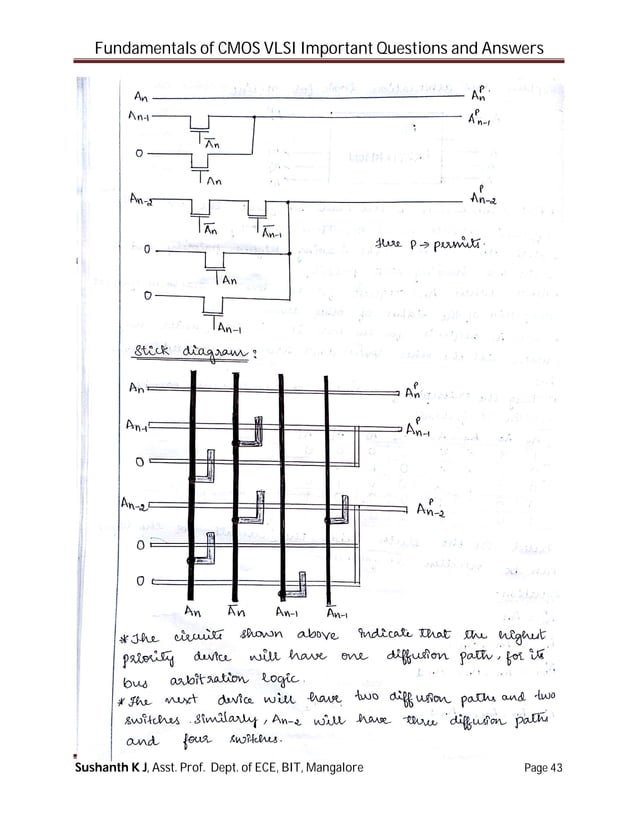 Fundamentals of CMOS VLSI Important Questions and Answers
An Aᵖn
An-1 Aᵖn-1
A̅n
0
An
An-2 Aᵖn-2
A̅n A̅n-1
Here P → permits.
0
An
0
An-1
Stick diagram :
An Aᵖn
An-1 Aᵖn-1
0
An-2 Aᵖn-2
0
0
An A̅n An-1 A̅n-1
* The circuits shown above indicate that the highest
priority device will have one diffusion path, for its
bus arbitration logic.
* The next device will have two diffusion paths and two
switches. Similarly, An-2 will have three diffusion paths
and four switches.
Sushanth K J, Asst. Prof. Dept. of ECE, BIT, Mangalore Page 43